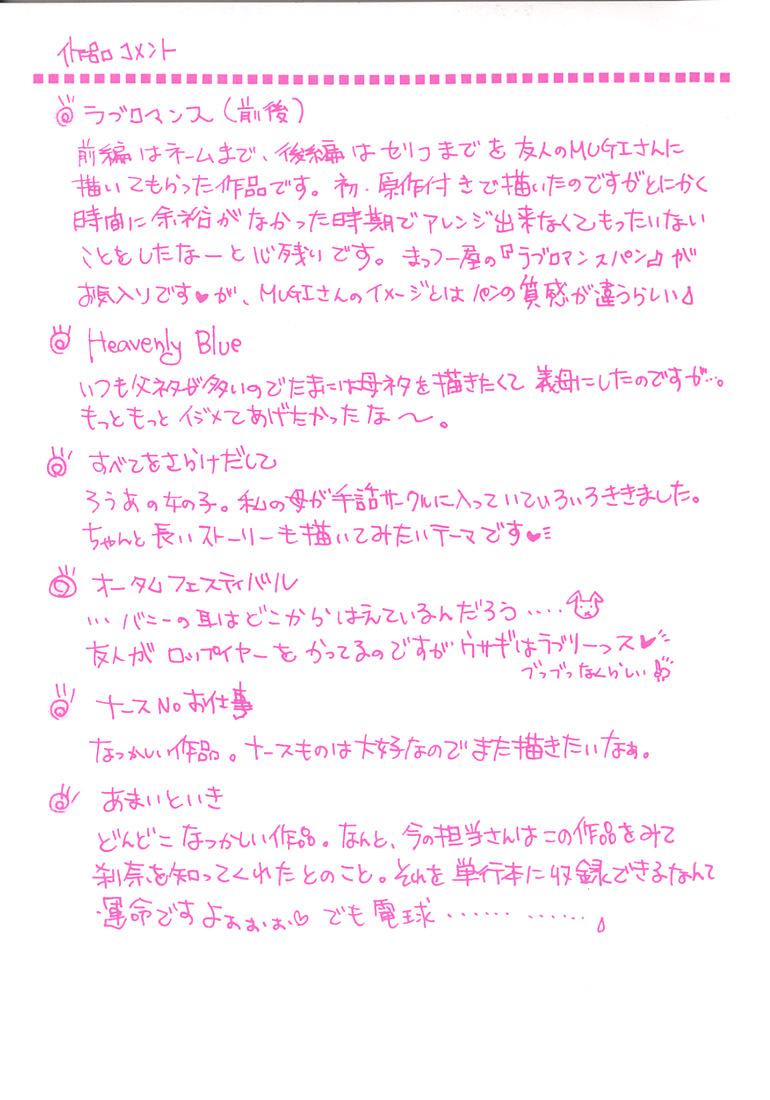 作品コメント
ラブロマンス(前後)
前編はネームまで、後編はセリフまでを友人のMUGIさんに
描いてもらった作品です。初・原作付きで描いたのですがとにかく
時間に余裕がなかった時期でアレンジ出来なくてもったいない
ことをしたなーと心残りです。まっフー屋の『ラブロマンスパン』が
お気入りです♥が、MUGIさんのイメージとはパンの質感が違うらしい
Heavenly Blue
いつも父ネタが多いのでたまには母ネタを描きたくて義母にしたのですが…。
もっともっとイジメてあげたかったな〜。
すべてをさらけだして
ろうあの女の子。私の母が手話サークルに入っていていろいろききました。
ちゃんと長いストーリーも描いてみたいテーマです♥
オータムフェスティバル
…バニーの耳はどこからはえているんだろう‥‥
友人がロップイヤーをかってるのですがウサギはラブリーっス♥
ブッブッなくらしい
ナースNoお仕事
なつかしい作品。ナースものは大好なのでまた描きたいなぁ。
あまいといき
どんどこなつかしい作品。なんと、今の担当さんはこの作品をみて
刹奈を知ってくれたとのこと。それを単行本に収録できるなんて
運命ですよぉぉぉ♡でも電球‥‥‥ ‥‥‥